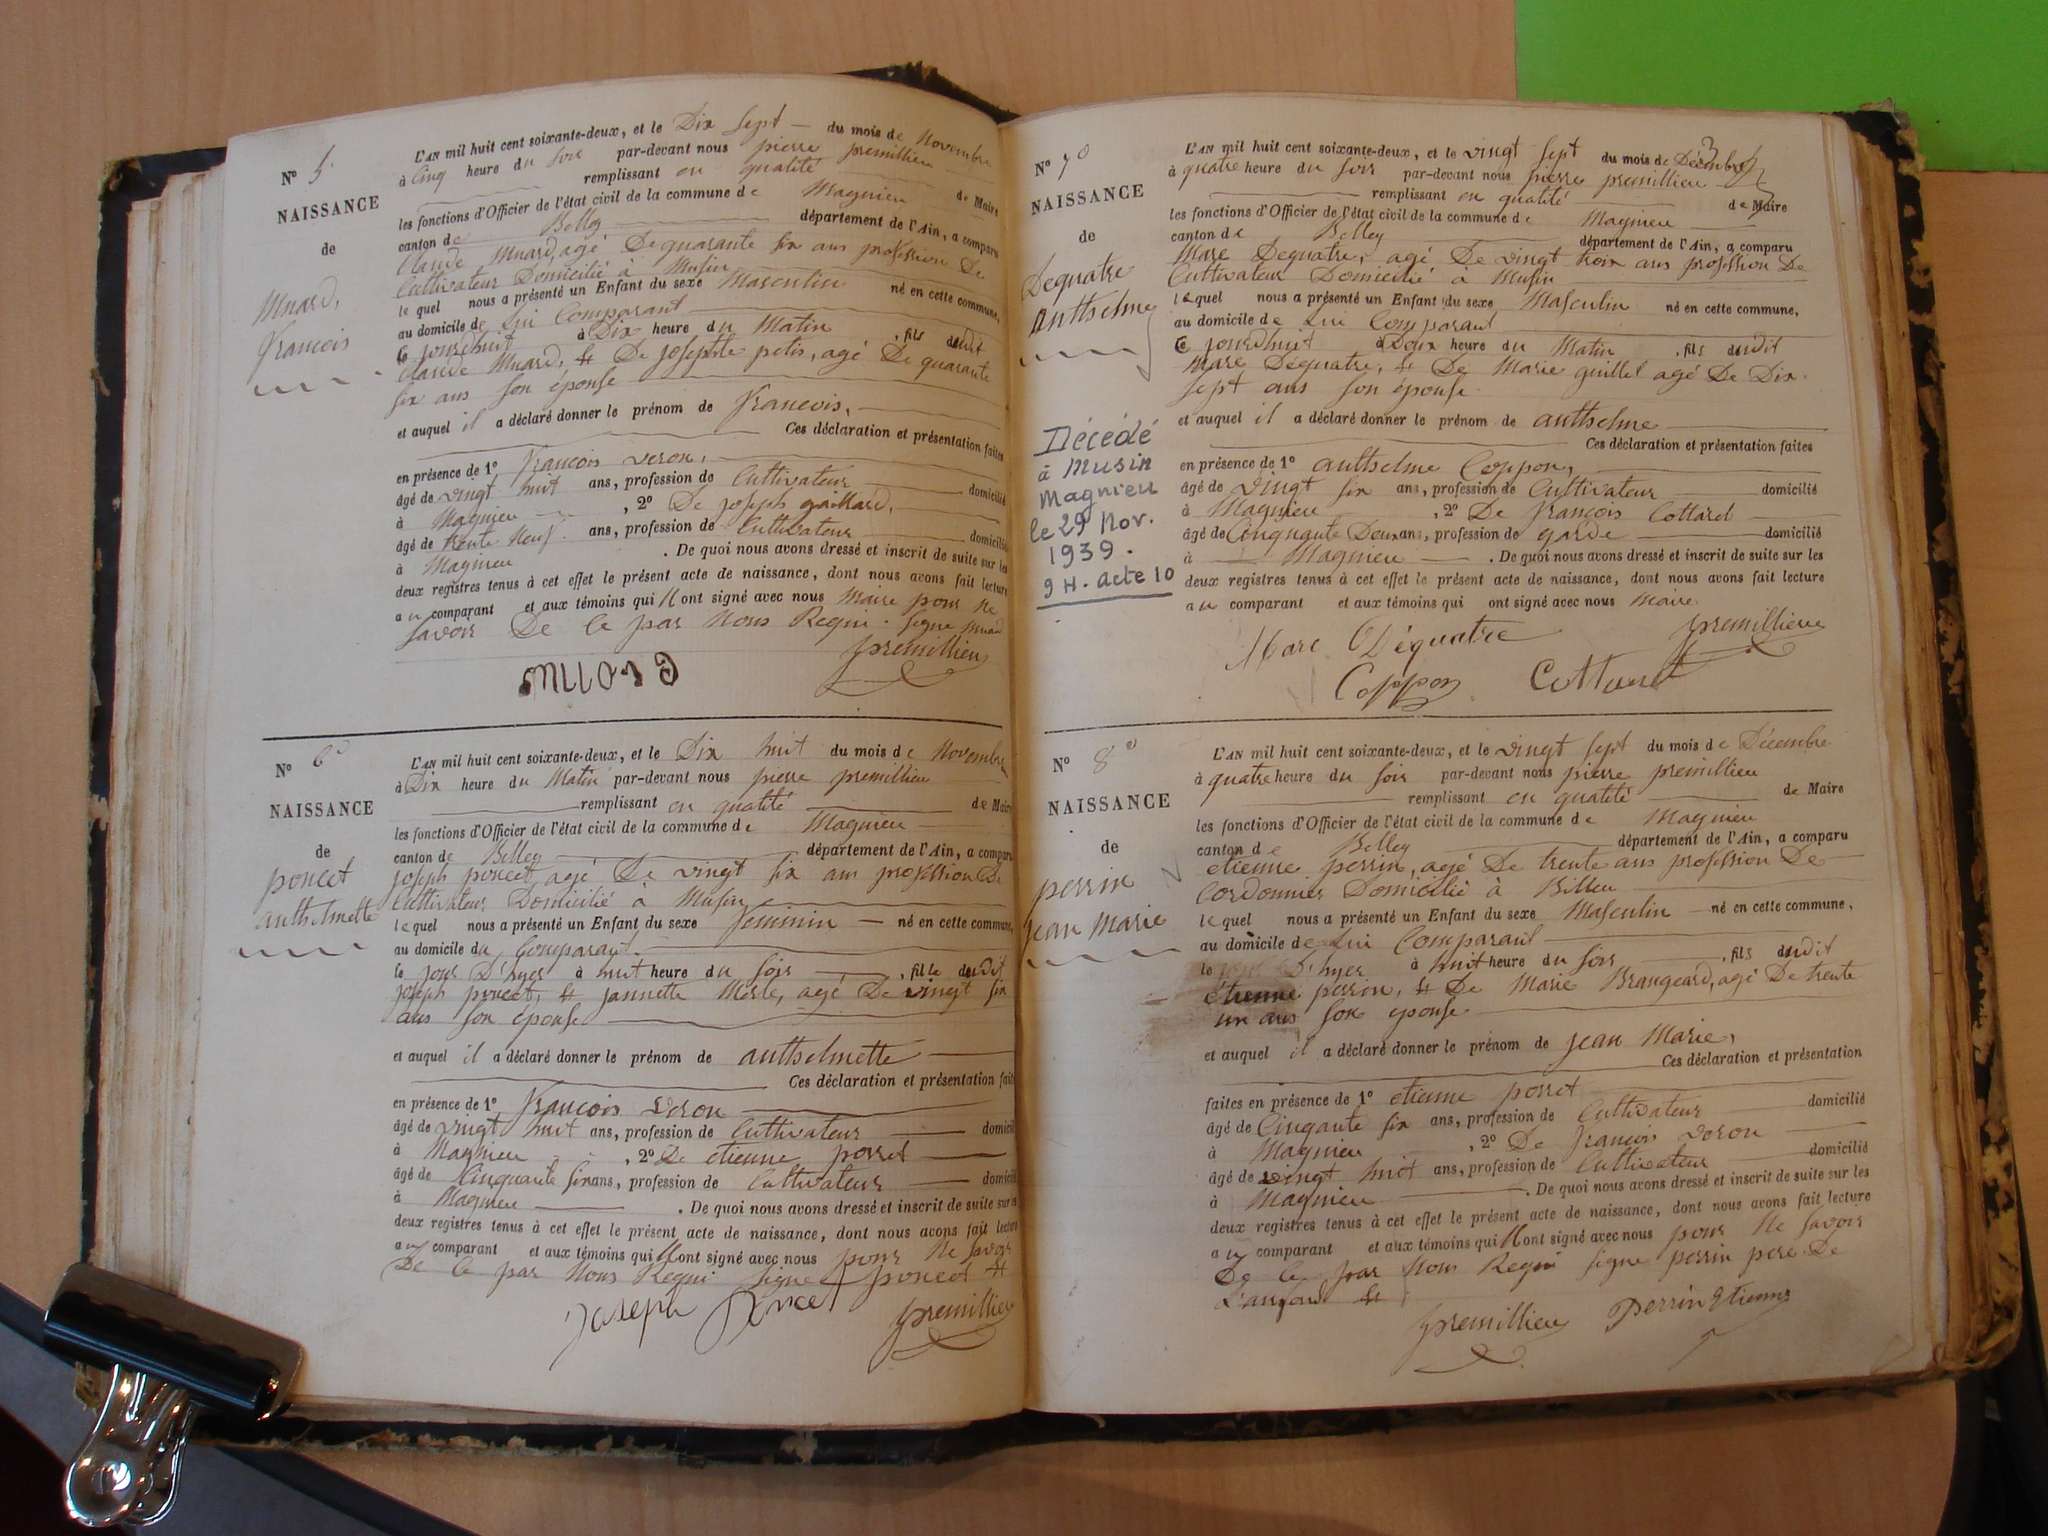 N° 5.
NAISSANCE
de
Muard,
francois
L'AN mil huit cent soixante-deux, et le Dix sept du mois de Novembre
à Cinq heure du soir par-devant nous pierre premillieu
remplissant en qualité de Maire
les fonctions d'Officier de l'état civil de la commune de Magnieu
canton de Belley département de l'Ain, a comparu
Claude Muard, agé De quarante six ans profession De
Cultivateur Domicilié à Musin
le quel nous a présenté un Enfant du sexe Masculin né en cette commune,
au domicile de Lui Comparant
le jourdhuit à Dix heure du Matin , fils dudit
claude Muard, et De josephte petit, agé De quarante
six ans son épouse
et auquel il a déclaré donner le prénom de francois,
Ces déclaration et présentation faites
en présence de 1° francois veron,
âgé de vingt huit ans, profession de Cultivateur domicilié
à Magnieu , 2° De joseph gaillard,
âgé de trente Neuf ans, profession de Cultivateur domicilié
à Magnieu . De quoi nous avons dressé et inscrit de suite sur les
deux registres tenus à cet effet le présent acte de naissance, dont nous avons fait lecture
au comparant et aux témoins qui N ont signé avec nous Maire pour Ne
savoir De Ce par Nous Requi. signe muard
premillieu
N° 6°
NAISSANCE
de
poncet
anthelmette
L'AN mil huit cent soixante-deux, et le Dix huit du mois de Novembre
à Dix heure du Matin par-devant nous pierre premillieu
remplissant en qualité de Maire
les fonctions d'Officier de l'état civil de la commune de Magnieu
canton de Belley département de l'Ain, a comparu
joseph poncet, agé De vingt six ans profession De
Cultivateur Domicilié à Musin
le quel nous a présenté un Enfant du sexe féminin né en cette commune,
au domicile du Comparant
le jour D'hyer à huit heure du soir , fille dudit
joseph poncet, et jannette Merle, agé De vingt six
ans son épouse
et auquel il a déclaré donner le prénom de anthelmette
Ces déclaration et présentation fait
en présence de 1° francois veron
âgé de vingt huit ans, profession de Cultivateur domicil
à Magnieu , 2° De etienne porret
âgé de Cinquante six ans, profession de Cultivateur domicil
à Magnieu . De quoi nous avons dressé et inscrit de suite sur
deux registres tenus à cet effet le présent acte de naissance, dont nous avons fait lectur
au comparant et aux témoins qui N ont signé avec nous pour Ne savoir
De Ce par Nous Requi signe poncet et
joseph Poncet premillieu
N° 7°
NAISSANCE
de
Dequatre
anthelme
Décédé
à Musin
Magnieu
le 29 Nov.
1939.
9 H. acte 10
L'AN mil huit cent soixante-deux, et le vingt sept du mois de Décembre
à quatre heure du soir par-devant nous pierre premillieu
remplissant en qualité de Maire
les fonctions d'Officier de l'état civil de la commune de Magnieu
canton de Belley département de l'Ain, a comparu
Marc Dequatre, agé De vingt trois ans profession De
Cultivateur Domicilié à Musin
le quel nous a présenté un Enfant du sexe Masculin né en cette commune,
au domicile de Lui Comparant
Ce jourdhuit à Deux heure du Matin , fils dudit
Marc Dequatre, et De Marie guillet agé De Dix
sept ans son épouse
et auquel il a déclaré donner le prénom de anthelme
Ces déclaration et présentation faites
en présence de 1° anthelme Coppon,
âgé de vingt six ans, profession de Cultivateur domicilié
à Magnieu , 2° De françois Cottard
âgé de Cinquante Deux ans, profession de garde domicilié
à Magnieu . De quoi nous avons dressé et inscrit de suite sur les
deux registres tenus à cet effet le présent acte de naissance, dont nous avons fait lecture
au comparant et aux témoins qui ont signé avec nous Maire
Marc Déquatre premillieu
Coppon Cottard
N° 8°
NAISSANCE
de
perrin
jean Marie
L'AN mil huit cent soixante-deux, et le vingt sept du mois de Décembre
à quatre heure du soir par-devant nous pierre premillieu
remplissant en qualité de Maire
les fonctions d'Officier de l'état civil de la commune de Magnieu
canton de Belley département de l'Ain, a comparu
etienne perrin, agé De trente ans profession De
Cordonnier Domicilié à Billeu
le quel nous a présenté un Enfant du sexe Masculin né en cette commune,
au domicile de Lui Comparant
le jour D'hyer à huit heure du soir , fils dudit
étienne perron, et De Marie Brangeard, agé De trente
un ans son epouse
et auquel il a déclaré donner le prénom de jean Marie,
Ces déclaration et présentation
faites en présence de 1° etienne porret
âgé de Cinqante six ans, profession de Cultivateur domicilié
à Magnieu , 2° De francois veron
âgé de vingt huit ans, profession de Cultivateur domicilié
à Magnieu . De quoi nous avons dressé et inscrit de suite sur les
deux registres tenus à cet effet le présent acte de naissance, dont nous avons fait lecture
au comparant et aux témoins qui N ont signé avec nous pour Ne savoir
De Ce par Nous Requi signe perrin pere De
L'anfant et
premillieu Perrin Etienne